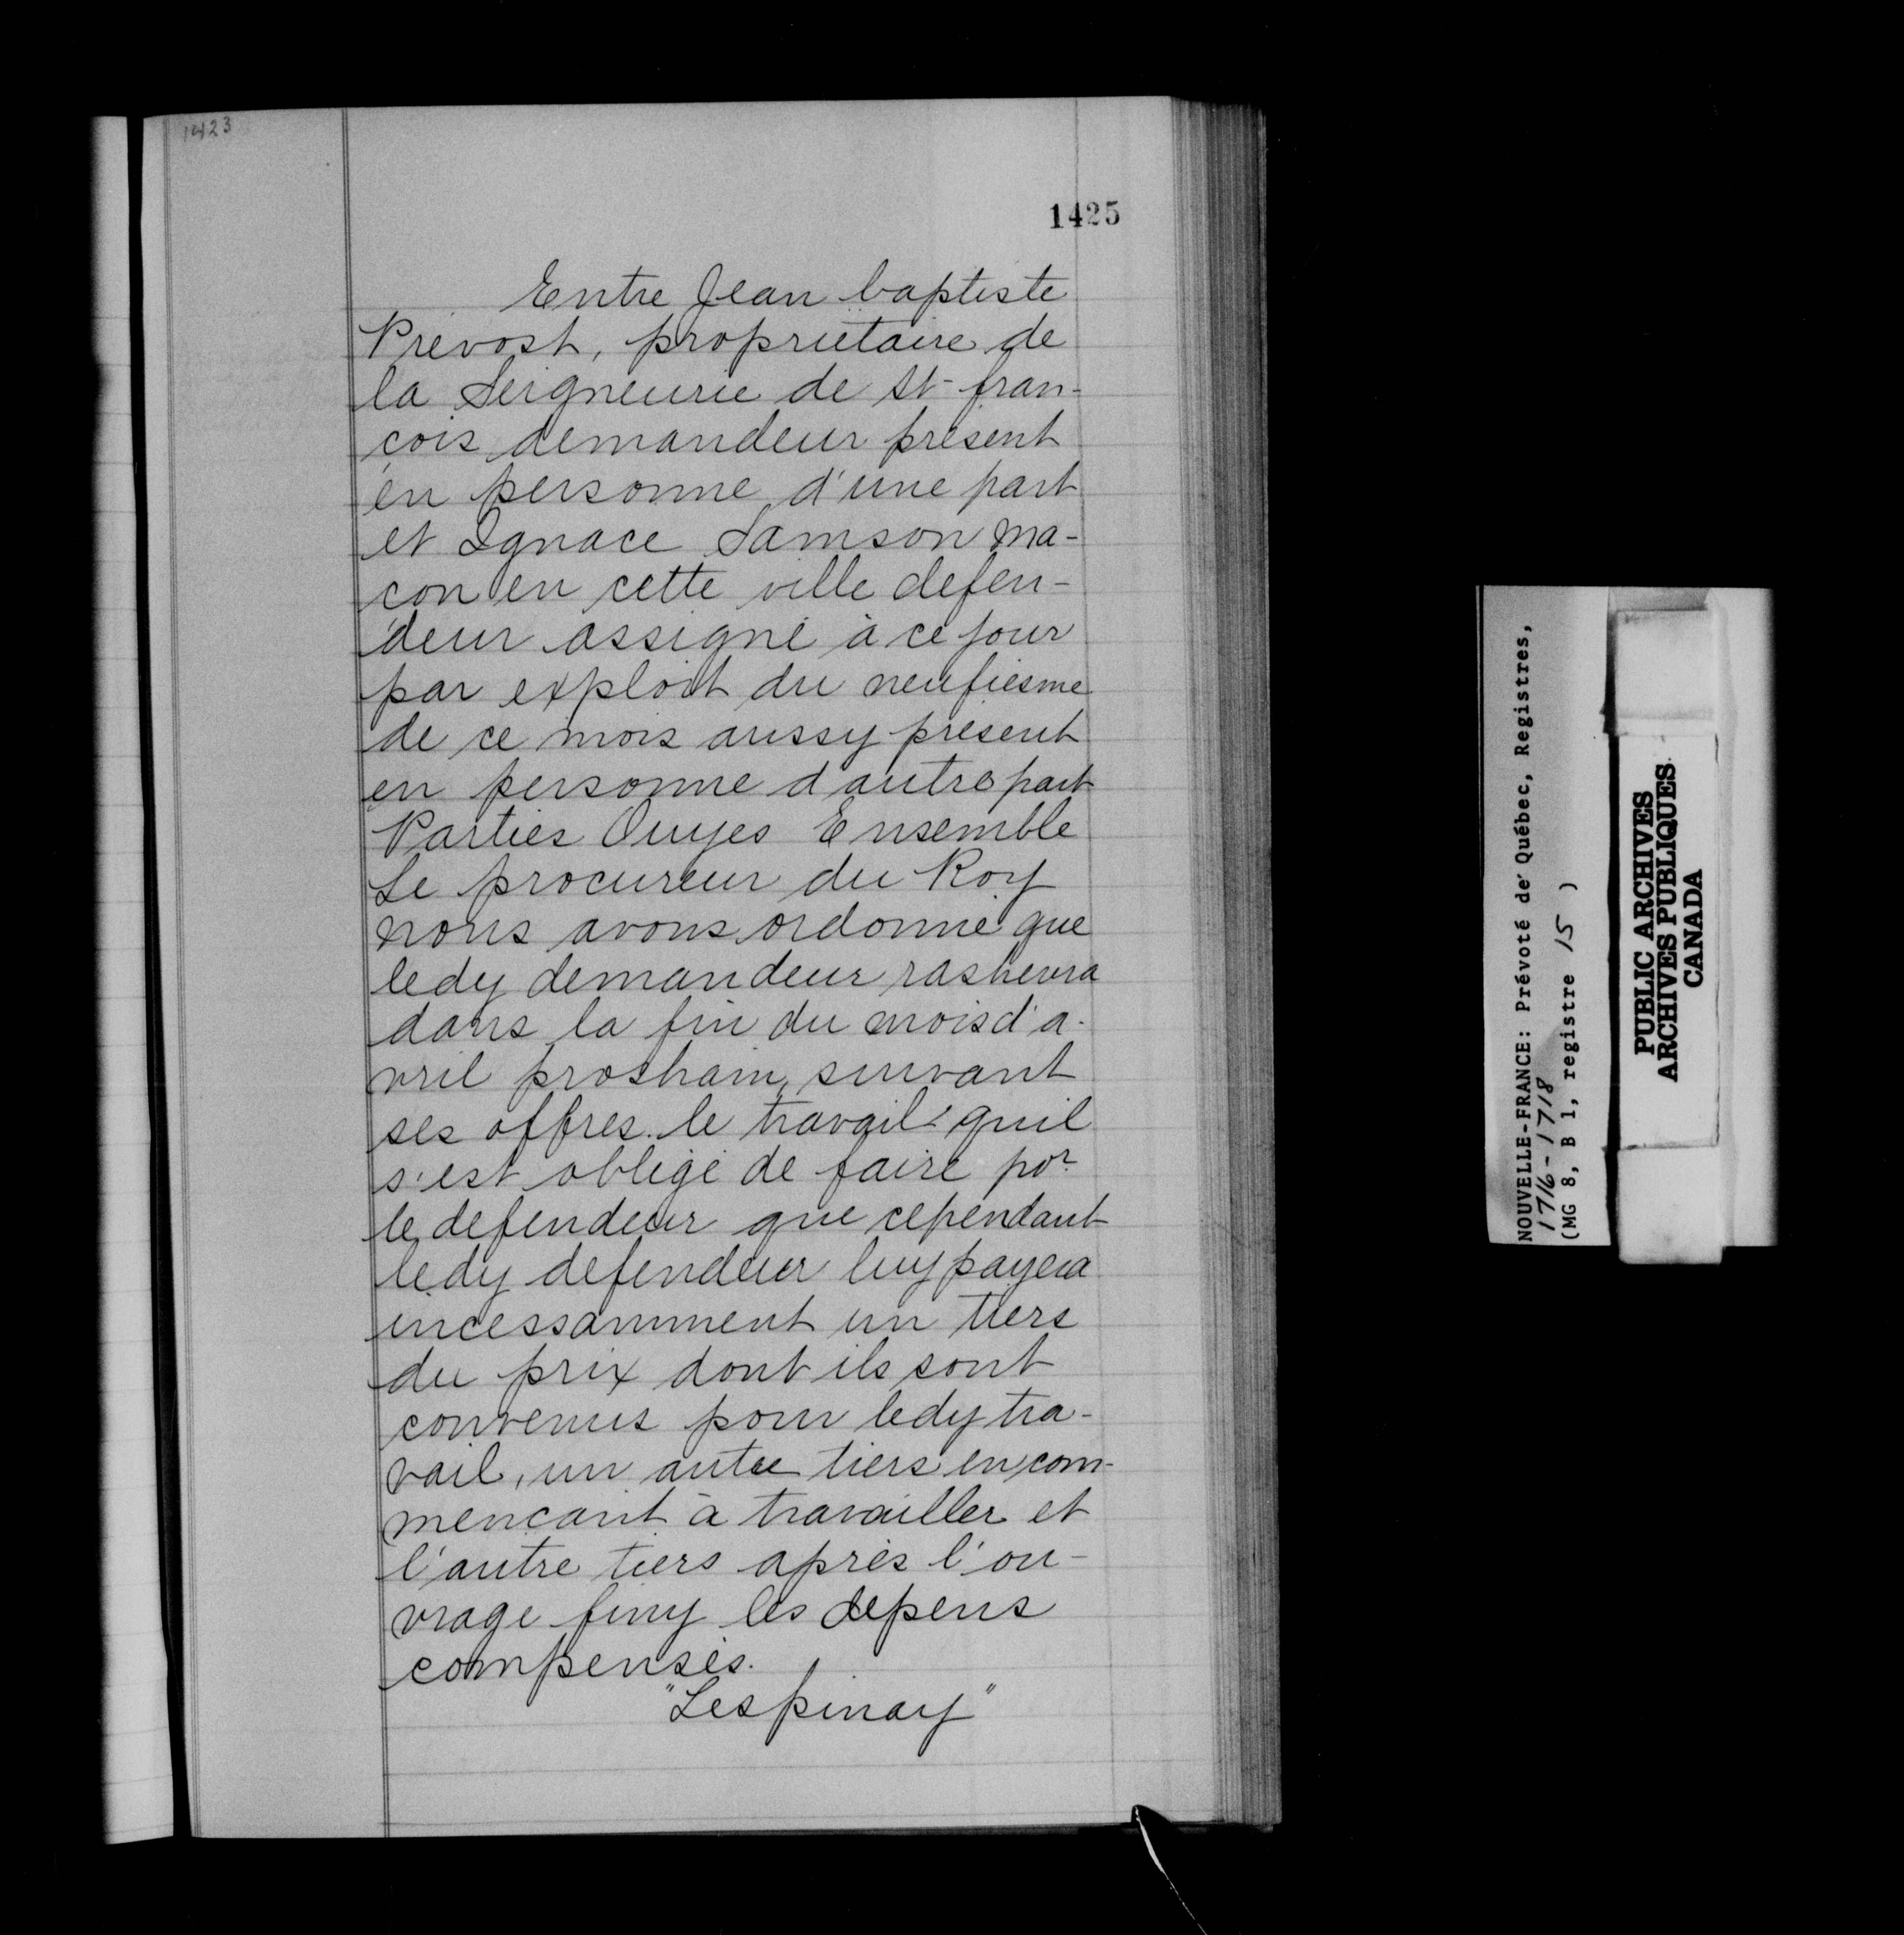 1423
1425
Entre Jean baptiste
Prévost, propriétaire de
la Seigneurie de St-fran-
çois demandeur présent
en personne d'une part
et Ignace Samson ma-
çon en cette ville defen-
deur assigné à ce jour
par exploit du neufiesme
de ce mois aussy présent
en personne d'autre part
Parties Ouyes Ensemble
Le procureur du Roy
nous avons ordonné que
ledy demandeur rashevra
dans la fin du mois d'a-
vril proshain, suivant
ses offres. le travail quil
s'est obligé de faire por
le defendeur que cependant
ledy defendeur luy payera
incessamment un tiers
du prix dont ils sont
convenus pour ledy tra-
vail, un autre tiers en com-
mencant à travailler et
l'autre tiers après l'ou-
vrage finy les depens
compensés.
"Lespinay"
NOUVELLE-FRANCE: Prévoté de Québec, Registres,
1716-1718
(MG 8, B 1, registre 15 )
PUBLIC ARCHIVES
ARCHIVES PUBLIQUES
CANADA